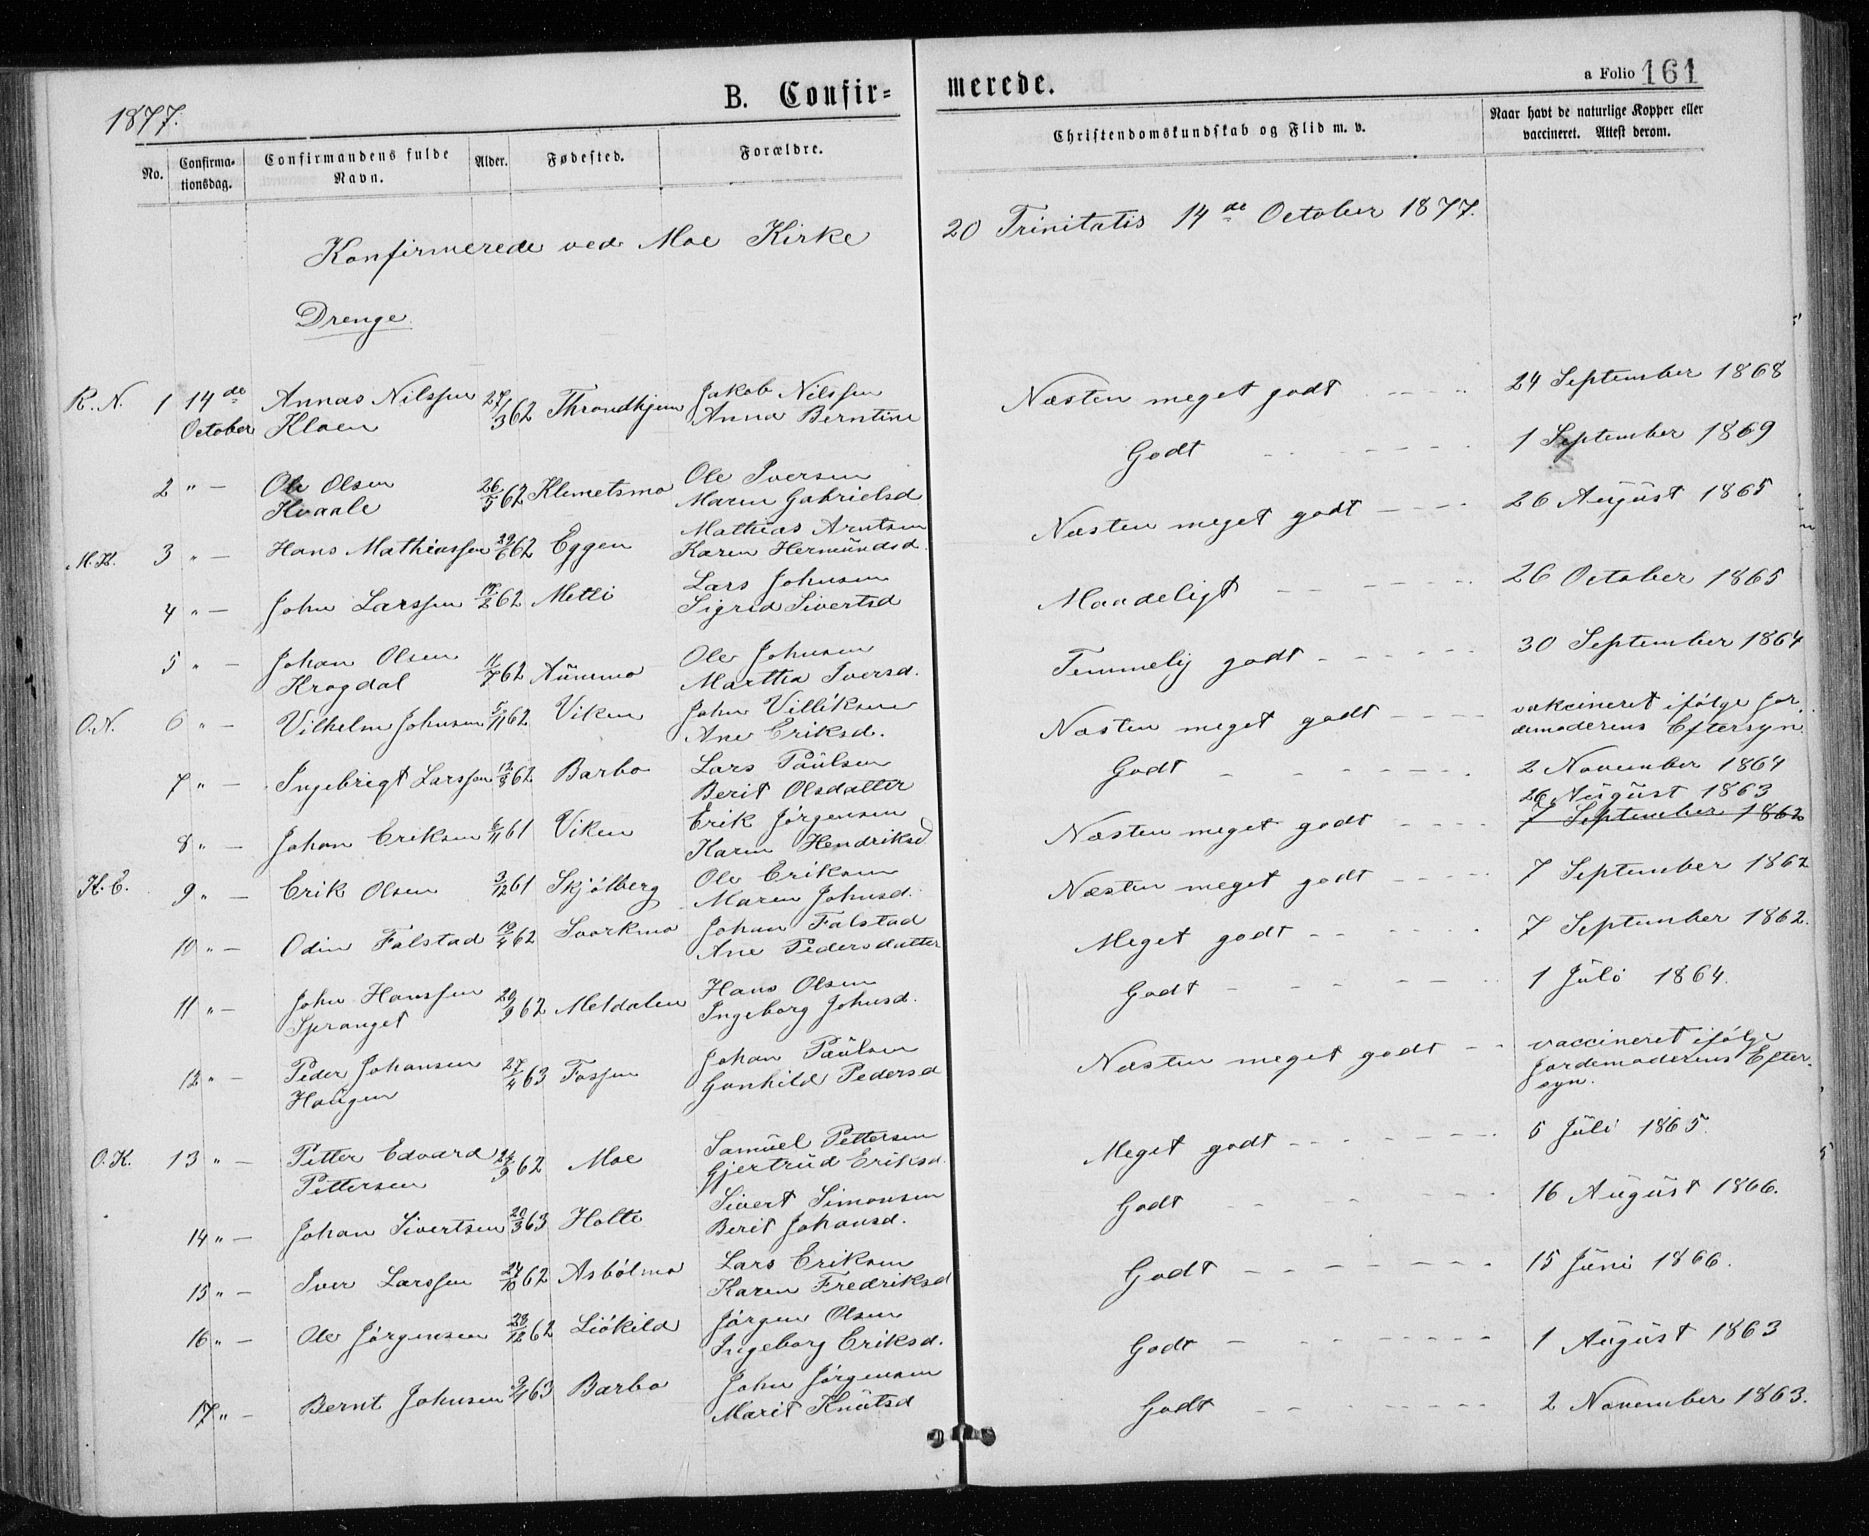 1877.
B. Confir=
merede.
a Folio 161
No.
Confirma-
tionsdag.
Confirmandens fulde
Navn.
Alder.
Fødested.
Forældre.
Christendomskundskab og Flid m. v.
Naar havt de naturlige Kopper eller
vaccineret. Attest derom.
Konfirmerede ved Moe Kirke 20 Trinitatis 14de October 1877.
Drenge
R. N. 1 14de Annas Nilssen 27/3 62 Throndhjem Jakob Nilssen Næsten meget godt - - - 24 September 1868
October Kloen Anna Berntine
2 " — Ole Olsen 26/5 62 Klemetsmo Ole Iversen Godt - - - 1 September 1869
Hvaale Maren Gabrielsd
M. H. 3 " — Hans Mathiassen 29/6 62 Eggen Mathias Arntsen Næsten meget godt - - - 26 August 1865
Karen Hermündsd.
4 " — John Larssen 17/2 62 Metli Lars Johnsen Maadeligt - - - 26 October 1865
Sigrid Sivertsd
5 " — Johan Olsen 11/7 62 Aünmo Ole Johnsen Temmelig godt - - - 30 September 1864
Krogdal Martha Iversd.
O. N. 6 " — Vilhelm Johnsen 5/11 62 Viken John Villiksen Næsten meget godt - - - vakcineret ifølge Jor-
Ane Eriksd. demoderens Eftersyn
7 " — Ingebrigt Larssen 12/8 62 Barbo Lars Paülsen Godt - - - 2 November 1864
Berit Olsdatter
8 " — Johan Eriksen 6/11 61 Viken Erik Jørgensen Næsten meget godt - - - 26 Aügüst 1863
Karen Hendriksd 7 September 1862
H. E. 9 " — Erik Olsen 3/12 61 Skjølberg Ole Eriksen Næsten meget godt - - - 7 September 1862
Maren Johnsd.
10 " — Odin Falstad 19/4 62 Svorkmo Johan Falstad Meget godt - - - 7 September 1862.
Ane Pedersdatter
11 " — John Hanssen 29/9 62 Meldalen Hans Olsen Godt - - - 1 Jüli 1864.
Spranget Ingeborg Johnsd.
12 " — Peder Johansen 27/4 63 Fossen Johan Paülsen Næsten meget godt - - vaccineret ifølge
Haugen Gonhild Pedersd Jordemoderens Efter-
syn.
O. K. 13 " — Petter Edvard 24/9 62 Moe Samüel Pettersen Meget godt - - - 5 Jüli 1865.
Pettersen Gjertrüd Eriksd.
14 " — Johan Sivertsen 20/3 63 Holte Sivert Simonsen Godt - - - 16 Aügüst 1866.
Berit Johansd.
15 " — Iver Larssen 24/10 62 Asbølmo Lars Eriksen Godt - - - 15 Jüni 1866.
Karen Fredriksd
16 " — Ole Jørgensen 28/12 62 Liøkild Jørgen Olsen Godt - - - 1 Aügüst 1863
Ingeborg Eriksd.
17 " — Bernt Johnsen 9/4 63 Barbo John Jørgensen Godt - - - 2 November 1863.
Marit Knütsd